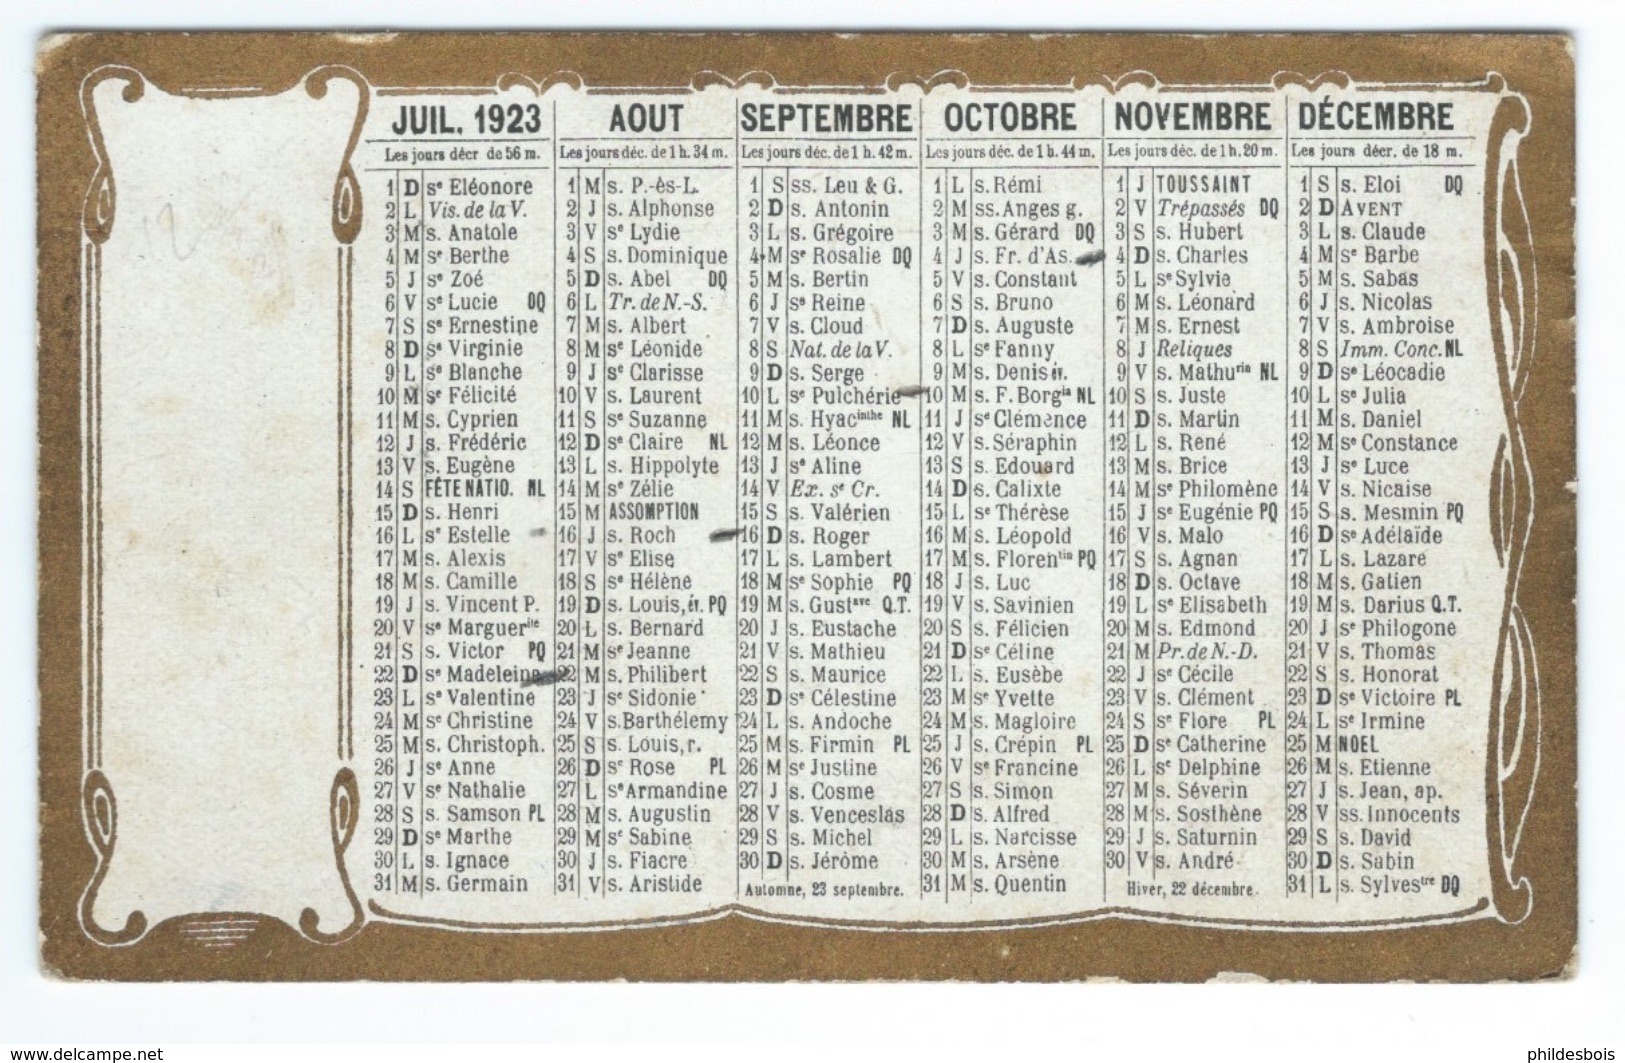 JUIL. 1923
Les jours décr de 56 m.
1 D Sᵉ Eléonore
2 L Vis. de la V.
3 M s. Anatole
4 M Sᵉ Berthe
5 J sᵉ Zoé
6 V sᵉ Lucie DQ
7 S sᵉ Ernestine
8 D sᵉ Virginie
9 L sᵉ Blanche
10 M sᵉ Félicité
11 M s. Cyprien
12 J s. Frédéric
13 V s. Eugène
14 S FÊTE NATIO. NL
15 D s. Henri
16 L sᵉ Estelle
17 M s. Alexis
18 M s. Camille
19 J s. Vincent P.
20 V sᵉ Marguerⁱᵗᵉ
21 S s. Victor PQ
22 D sᵉ Madeleine
23 L sᵉ Valentine
24 M sᵉ Christine
25 M s. Christoph.
26 J sᵉ Anne
27 V sᵉ Nathalie
28 S s. Samson PL
29 D sᵉ Marthe
30 L s. Ignace
31 M s. Germain
AOUT
Les jours déc. de 1 h. 34 m.
1 M s. P.-ès-L.
2 J s. Alphonse
3 V sᵉ Lydie
4 S s. Dominique
5 D s. Abel DQ
6 L Tr. de N.-S.
7 M s. Albert
8 M sᵉ Léonide
9 J sᵉ Clarisse
10 V s. Laurent
11 S sᵉ Suzanne
12 D sᵉ Claire NL
13 L s. Hippolyte
14 M sᵉ Zélie
15 M ASSOMPTION
16 J s. Roch
17 V sᵉ Elise
18 S sᵉ Hélène
19 D s. Louis, év. PQ
20 L s. Bernard
21 M sᵉ Jeanne
22 M s. Philibert
23 J sᵉ Sidonie
24 V s. Barthélemy
25 S s. Louis, r.
26 D sᵉ Rose PL
27 L sᵉ Armandine
28 M s. Augustin
29 M sᵉ Sabine
30 J s. Fiacre
31 V s. Aristide
SEPTEMBRE
Les jours déc. de 1 h. 42 m.
1 S ss. Leu & G.
2 D s. Antonin
3 L s. Grégoire
4 M sᵉ Rosalie DQ
5 M s. Bertin
6 J sᵉ Reine
7 V s. Cloud
8 S Nat. de la V.
9 D s. Serge
10 L sᵉ Pulchérie
11 M s. Hyacⁱⁿᵗʰᵉ NL
12 M s. Léonce
13 J sᵉ Aline
14 V Ex. sᵉ Cr.
15 S s. Valérien
16 D s. Roger
17 L s. Lambert
18 M sᵉ Sophie PQ
19 M s. Gustᵃᵛᵉ Q.T.
20 J s. Eustache
21 V s. Mathieu
22 S s. Maurice
23 D sᵉ Célestine
24 L s. Andoche
25 M s. Firmin PL
26 M sᵉ Justine
27 J s. Cosme
28 V s. Venceslas
29 S s. Michel
30 D s. Jérôme
Automne, 23 septembre.
OCTOBRE
Les jours déc. de 1 h. 44 m.
1 L s. Rémi
2 M ss. Anges g.
3 M s. Gérard DQ
4 J s. Fr. d'As.
5 V s. Constant
6 S s. Bruno
7 D s. Auguste
8 L sᵉ Fanny
9 M s. Denis év.
10 M s. F. Borgⁱᵃ NL
11 J sᵉ Clémence
12 V s. Séraphin
13 S s. Edouard
14 D s. Calixte
15 L sᵉ Thérèse
16 M s. Léopold
17 M s. Florentⁱⁿ PQ
18 J s. Luc
19 V s. Savinien
20 S s. Félicien
21 D sᵉ Céline
22 L s. Eusèbe
23 M sᵉ Yvette
24 M s. Magloire
25 J s. Crépin PL
26 V sᵉ Francine
27 S s. Simon
28 D s. Alfred
29 L s. Narcisse
30 M s. Arsène
31 M s. Quentin
NOVEMBRE
Les jours déc. de 1 h. 20 m.
1 J TOUSSAINT
2 V Trépassés DQ
3 S s. Hubert
4 D s. Charles
5 L sᵉ Sylvie
6 M s. Léonard
7 M s. Ernest
8 J Reliques
9 V s. Mathuʳⁱⁿ NL
10 S s. Juste
11 D s. Martin
12 L s. René
13 M s. Brice
14 M sᵉ Philomène
15 J sᵉ Eugénie PQ
16 V s. Malo
17 S s. Agnan
18 D s. Octave
19 L sᵉ Elisabeth
20 M s. Edmond
21 M Pr. de N.-D.
22 J sᵉ Cécile
23 V s. Clément
24 S sᵉ Flore PL
25 D sᵉ Catherine
26 L sᵉ Delphine
27 M s. Séverin
28 M s. Sosthène
29 J s. Saturnin
30 V s. André
Hiver, 22 décembre.
DÉCEMBRE
Les jours décr. de 18 m.
1 S s. Eloi DQ
2 D AVENT
3 L s. Claude
4 M sᵉ Barbe
5 M s. Sabas
6 J s. Nicolas
7 V s. Ambroise
8 S Imm. Conc. NL
9 D sᵉ Léocadie
10 L sᵉ Julia
11 M s. Daniel
12 M sᵉ Constance
13 J sᵉ Luce
14 V s. Nicaise
15 S s. Mesmin PQ
16 D sᵉ Adélaïde
17 L s. Lazare
18 M s. Gatien
19 M s. Darius Q.T.
20 J sᵉ Philogone
21 V s. Thomas
22 S s. Honorat
23 D sᵉ Victoire PL
24 L sᵉ Irmine
25 M NOEL
26 M s. Etienne
27 J s. Jean, ap.
28 V ss. Innocents
29 S s. David
30 D s. Sabin
31 L s. Sylvesᵗʳᵉ DQ
www.delcampe.net
phildesbois